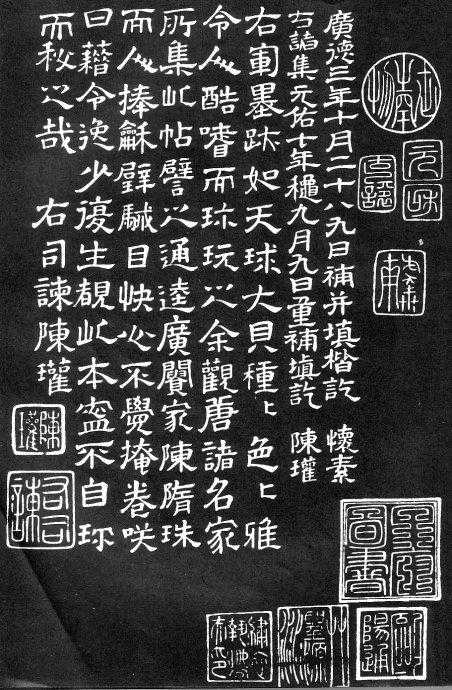 廣德三年十月二十八九日補并填楷訖 懷素
右諸集元佑十年穐九月九日重補填訖 陳瓘
右軍墨跡如天球大貝種〻色〻雅
令人酷嗜而珎玩之余觀唐諸名家
所集此帖譬之通逵廣闠家陳隋珠
而人捧龢璧駴目快心不覺掩卷咲
曰藉令逸少復生覩此本寍不自珎
而秘之哉 右司諫陳瓘
陳瓘
右司諫